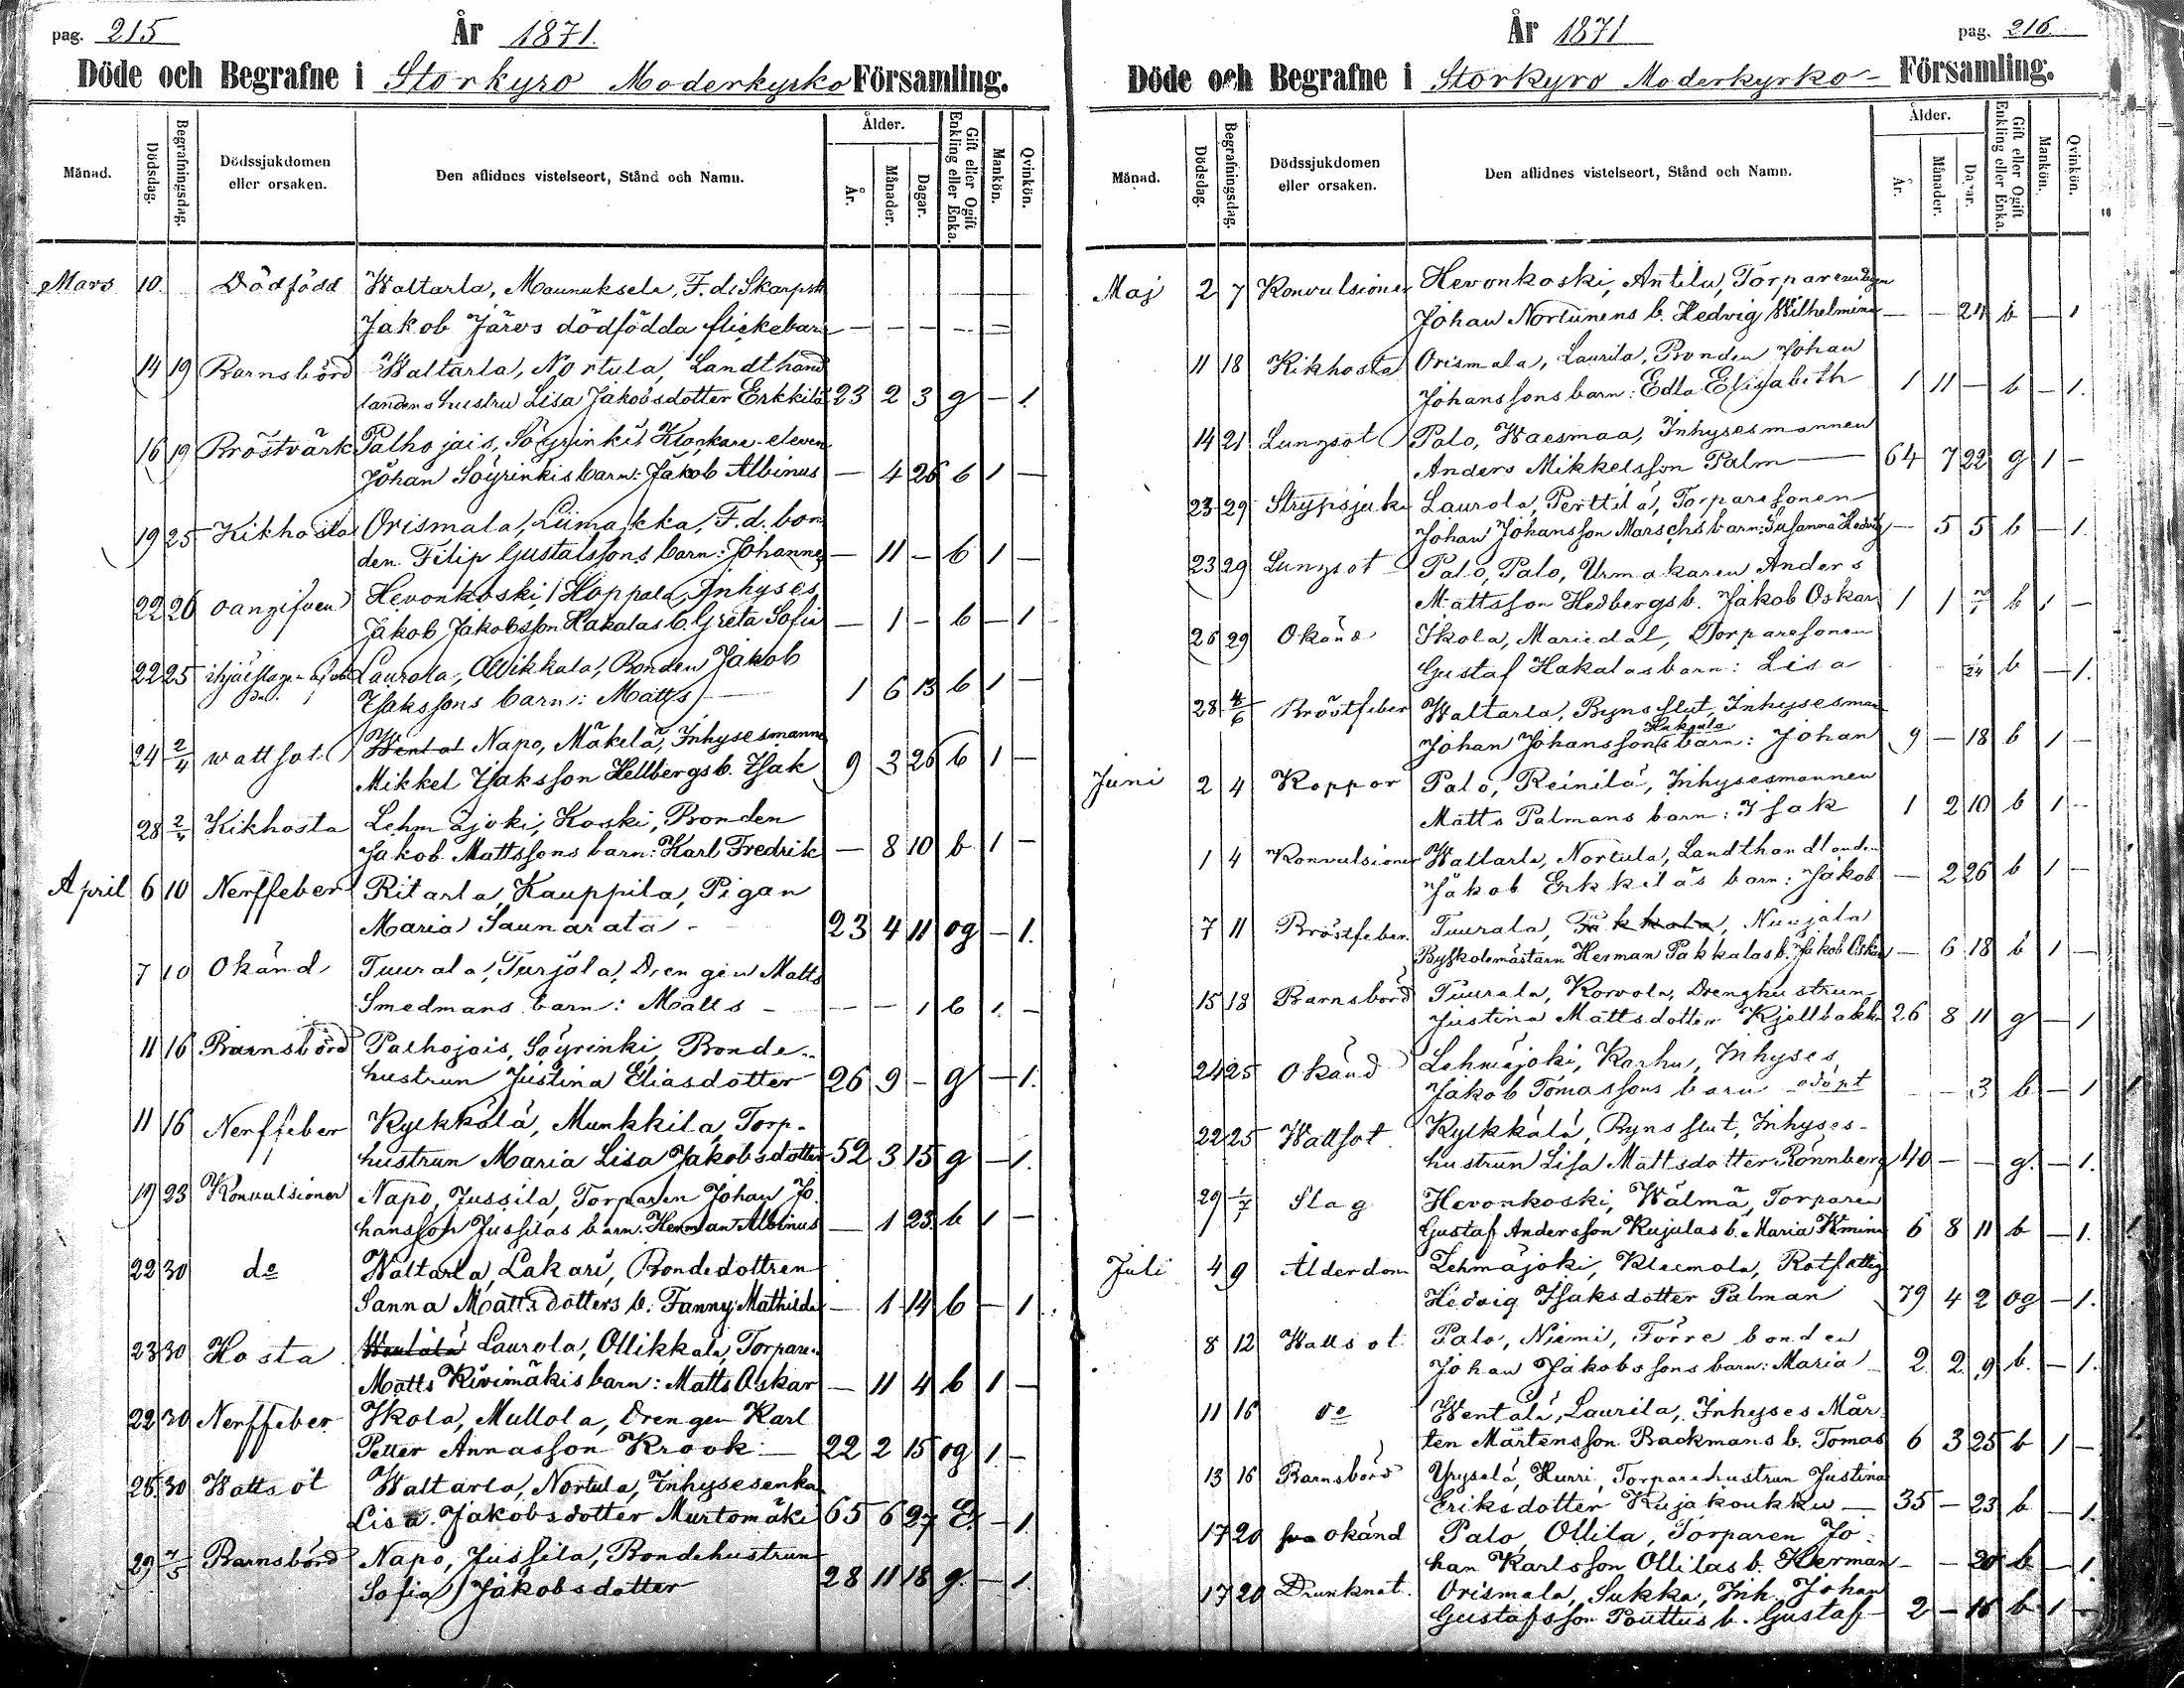 pag. 215
År 1871.
Döde och Begrafne i Storkyro Moderkyrko Församling.
Månad.
Dödsdag.
Begrafningsdag.
Dödssjukdomen
eller orsaken.
Den aflidnes vistelseort, Stånd och Namn.
Ålder.
År.
Månader.
Dagar.
Gift eller Ogift
Enkling eller Enka.
Mankön.
Qvinkön.
Mars 10. Dödfödd Waltarla, Maunuksela, F.d. Skarpsk
Jakob Järvs dödfödda flickebarn — — — — —
14 19 Barnsbörd Waltarla, Nortula, Landthand
landens hustru Lisa Jakobsdotter Erkkilä 23 2 3 g — 1.
16 19 Bröstvärk Palhojais, Söyrinki, Klockare-eleven
Johan Söyrinkis barn: Jakob Albinus — 4 26 b 1 —
19 25 Kikhosta Orismala, Liimakka, F.d. bon
den Filip Gustafssons barn: Johannes — 11 — b 1 —
22 26 oangifven Hevonkoski, Hoppala, Inhyses
Jakob Jakobsson Hakalas b. Greta Sofia — 1 — b — 1
22 25 Laurola, Ollikkala, Bonden Jakob
Isakssons barn: Matts — 1 6 13 b 1 —
24 2/4 wattsot Napo, Mäkelä, Inhysesmannen
Mikkel Isaksson Hellbergs b. Isak 9 3 26 b 1 —
28 2/4 Kikhosta Lehmäjoki, Koski, Bonden
Jakob Mattssons barn: Karl Fredrik — 8 10 b 1 —
April 6 10 Nerffeber Ritarla, Kauppila, Pigan
Maria Saunarata - 23 4 11 og — 1.
7 10 Okänd Tuurala, Turjala, Drengen Matts
Smedmans barn: Matts - — — 1 b 1. —
11 16 Barnsbörd Palhojais, Söyrinki, Bonde-
hustrun Justina Eliasdotter 26 9 — g — 1.
11 16 Nerffeber Kylkkälä, Munkkila, Torp-
hustrun Maria Lisa Jakobsdotter 52 3 15 g — 1.
19 23 Konvulsioner Napo, Jussila, Torparen Johan Jo-
hansson Jussilas barn: Herman Albinus — 1 23. b 1 —
22 30 do Waltarla, Lakari, Bondedottren
Sanna Mattsdotters b. Fanny Mathilda — 1 14 b — 1.
23 30 Hosta Laurola, Ollikkala, Torparen
Matts Kivimäkis barn: Matts Oskar — 11 4 b 1 —
22 30 Nerffeber Ikola, Mullola, Drengen Karl
Petter Annasson Krook — 22 2 15 og 1. —
25. 30 Wattsot Waltarla, Nortula, Inhysesenkan
Lisa Jakobsdotter Murtomäki 65 6 27 E. — 1.
29 7/5 Barnsbörd Napo, Jussila, Bondehustrun
Sofia Jakobsdotter 28 11 18 g. — 1.
År 1871
pag. 216.
Döde och Begrafne i Storkyro Moderkyrko- Församling.
Månad.
Dödsdag.
Begrafningsdag.
Dödssjukdomen
eller orsaken.
Den aflidnes vistelseort, Stånd och Namn.
Ålder.
År.
Månader.
Dagar.
Gift eller Ogift
Enkling eller Enka.
Mankön.
Qvinkön.
Maj 2 7 Konvulsioner Hevonkoski, Antila,
Johan Nortunens b. Hedvig Wilhelmina — — 24 b — 1
11 18 Kikhosta Orismala, Laurila, Bonden Johan
Johanssons barn: Edla Elisabeth 1 11 — b — 1.
14 21 Lungsot Palo, Waesmaa, Inhysesmannen
Anders Mikkelsson Palm — 64 7 22 g 1 —
23 29 Strypsjuka Laurola, Perttilä, Torparesonen
Johan Johansson Marschs barn: Susanna Hedvig — 5 5 b — 1.
23 29 Lungsot Palo, Palo, Urmakaren Anders
Mattsson Hedbergs b. Jakob Oskar 1 1 b 1 —
26 29 Okänd Ikola, Mariedal, Torparesonen
Gustaf Hakalas barn: Lisa 1/24 b — 1.
28 4/6 Bröstfeber Waltarla, Bynsslut, Inhysesman
Hakala
Johan Johanssons barn: Johan 9 — 18 b 1 —
Juni 2 4 Koppor Palo, Reinilä, Inhysesmannen
Matts Palmans barn: Isak 1 2 10 b 1 —
1 4 Konvulsioner Waltarla, Nortula, Landthandlanden
Jakob Erkkiläs barn: Jakob — 2 26 b 1 —
7 11 Bröstfeber. Tuurala, Nuujala
Byskolemästarn Herman Pakkalas b. Jakob Oskar — 6 18 b 1 —
15 18 Barnsbörd Tuurala, Korvola, Drenghustrun
Justina Mattsdotter Kjellbakka 26 8 11 g — 1
24 25 Okänd Lehmäjoki, Karhu, Inhyses
Jakob Tomassons barn odöpt — — 3 b — 1
22 25 Wattsot Kylkkälä, Bynsslut, Inhyses-
hustrun Lisa Mattsdotter Rönnberg 40 — — g. — 1.
29 1/7 Slag Hevonkoski, Wälmä, Torparen
Gustaf Andersson Kujalas b. Maria Wmina 6 8 11 b — 1.
Juli 4 9 Ålderdom Lehmäjoki, Kleemola, Rotfattig
Hedvig Isaksdotter Palman 79 4 2 og — 1.
8 12 Wattsot Palo, Niemi, Förre bonden
Johan Jakobssons barn: Maria 2 2 9 b. — 1.
11 16 do Wentälä, Laurila, Inhyses Mår-
ten Mårtensson Backmans b. Tomas 6 3 25 b 1 —
13 16 Barnsbörd Yryselä, Hurri, Torparehustrun Justina
Eriksdotter Kujakoukku — 35 — 23 b — 1.
17 20 okänd Palo, Ollila, Torparen Jo-
han Karlsson Ollilas b. Herman — — 20 b — 1.
17 20 Drunknat. Orismala, Sukka, Inh. Johan
Gustafsson Pouttus b. Gustaf — 2 — 16 b 1 —